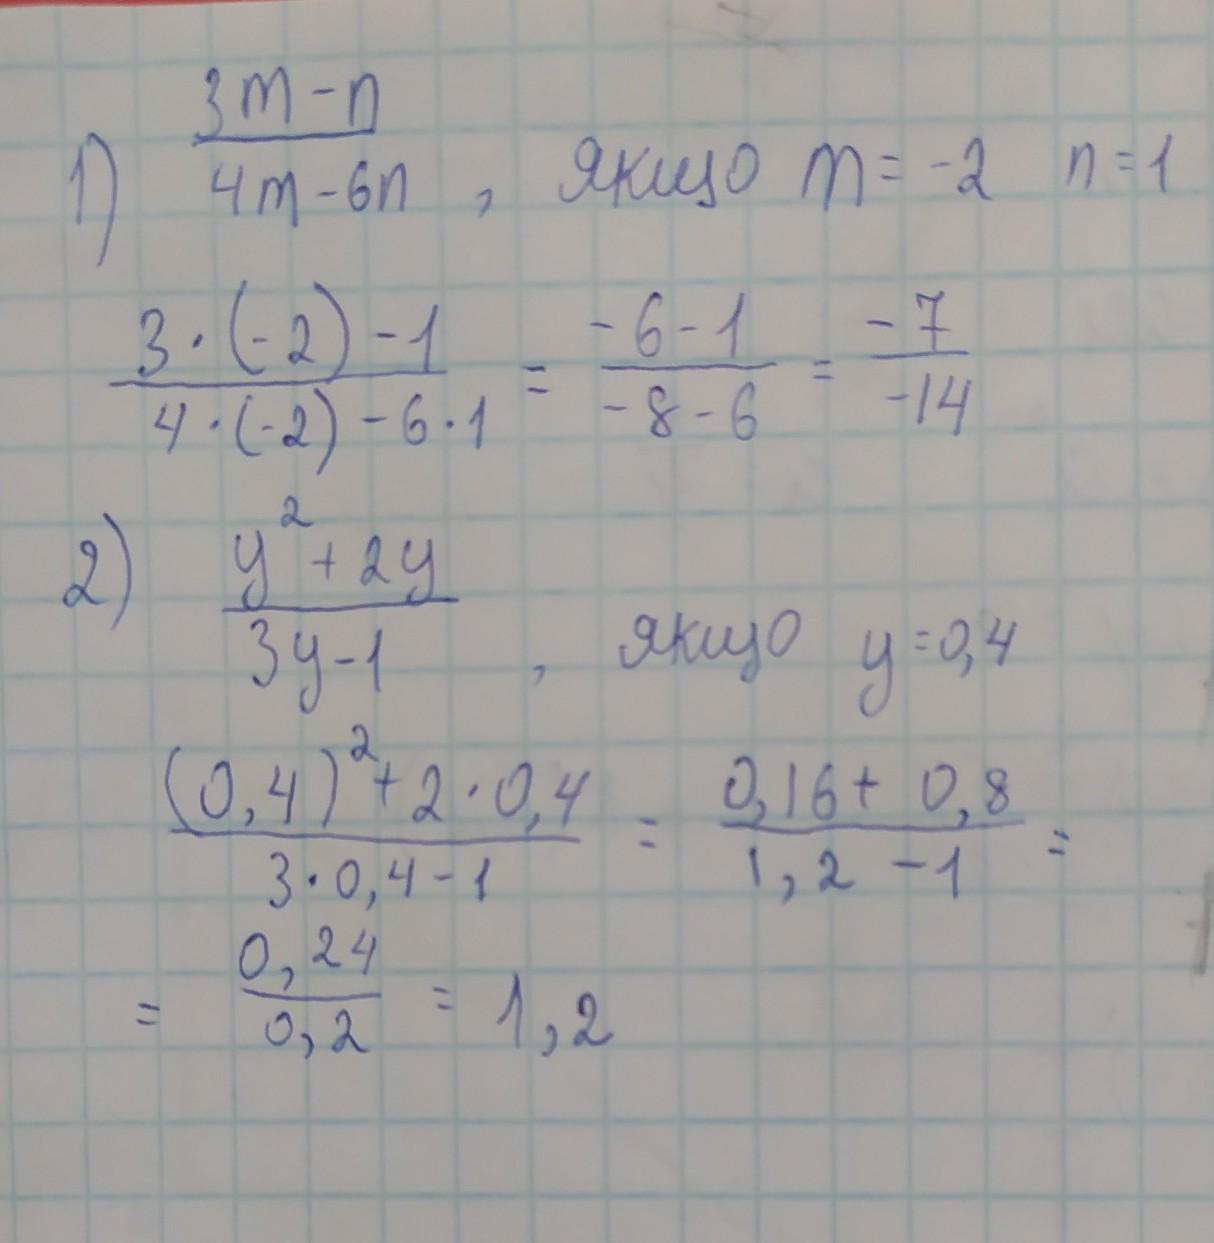 1) (3m - n)/(4m - 6n), якщо m = -2 n = 1
(3 · (-2) - 1)/(4 · (-2) - 6 · 1) = (-6 - 1)/(-8 - 6) = (-7)/(-14)
2) (y² + 2y)/(3y - 1), якщо y = 0,4
((0,4)² + 2 · 0,4)/(3 · 0,4 - 1) = (0,16 + 0,8)/(1,2 - 1) =
= (0,24)/(0,2) = 1,2